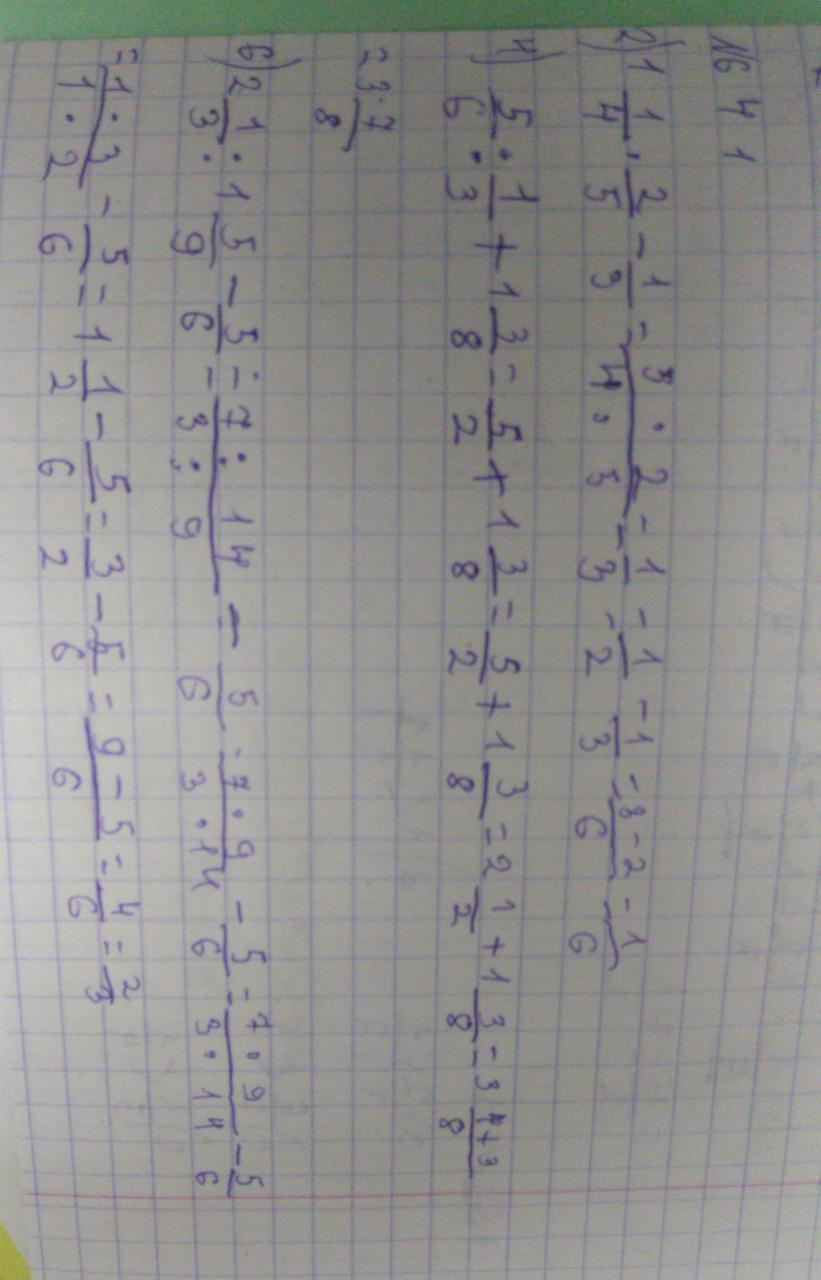 № 6 4 1
2) 1 1/4 · 2/5 - 1/3 = 3 · 2 / 4 · 5 - 1/3 = 1/2 - 1/3 = 3 - 2 / 6 = 1/6
4) 5/6 : 1/3 + 1 3/8 = 5/2 + 1 3/8 = 5/2 + 1 3/8 = 2 1/2 + 1 3/8 = 3 4+3/8
= 3 7/8
6) 2 1/3 : 1 5/9 - 5/6 = 7 : 14 / 3 : 9 - 5/6 = 7 · 9 / 3 · 14 - 5/6 = 7 · 9 / 3 · 14 - 5/6
= 1 · 3 / 1 · 2 - 5/6 = 1 1/2 - 5/6 = 3/2 - 5/6 = 9 - 5 / 6 = 4/6 = 2/3